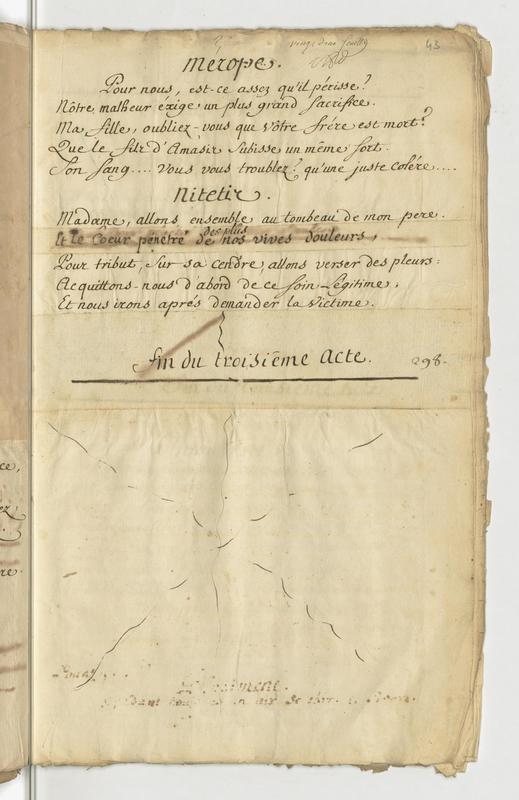 43
Merope.
Pour nous, est-ce assez qu'il périsse?
Nôtre malheur éxige un plus grand Sacrifice.
Ma fille, oubliez-vous que vôtre frére est mort?
Que le fils d'Amasis Subisse un même sort.
Son sang.... vous vous troublez? qu'une juste colére....
Nitetis.
Madame, allons ensemble au tombeau de mon pere.
des plus
Et le Coeur pénétré de nos vives douleurs,
Pour tribut, Sur sa cendre, allons verser des pleurs:
Acquittons-nous d'abord de ce soin Légitime,
Et nous irons aprés demander la Victime.
fin du troisiême Acte. 298.